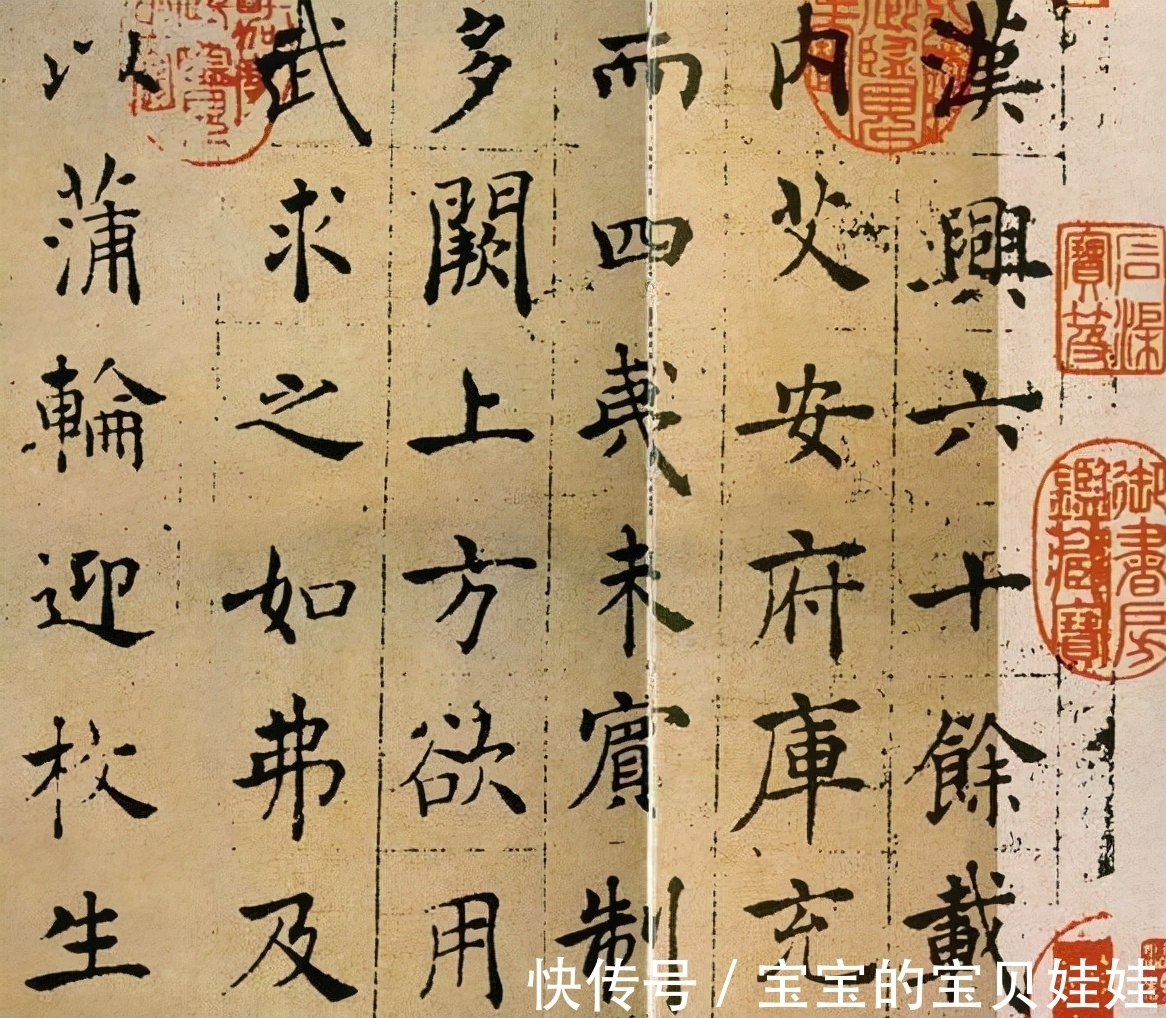 漢興六十餘載
內艾安府庫充
而四夷未賓制
多闕上方欲用
武求之如弗及
以蒲輪迎枚生
御書房鑑藏寶
快传号 / 宝宝的宝贝娃娃